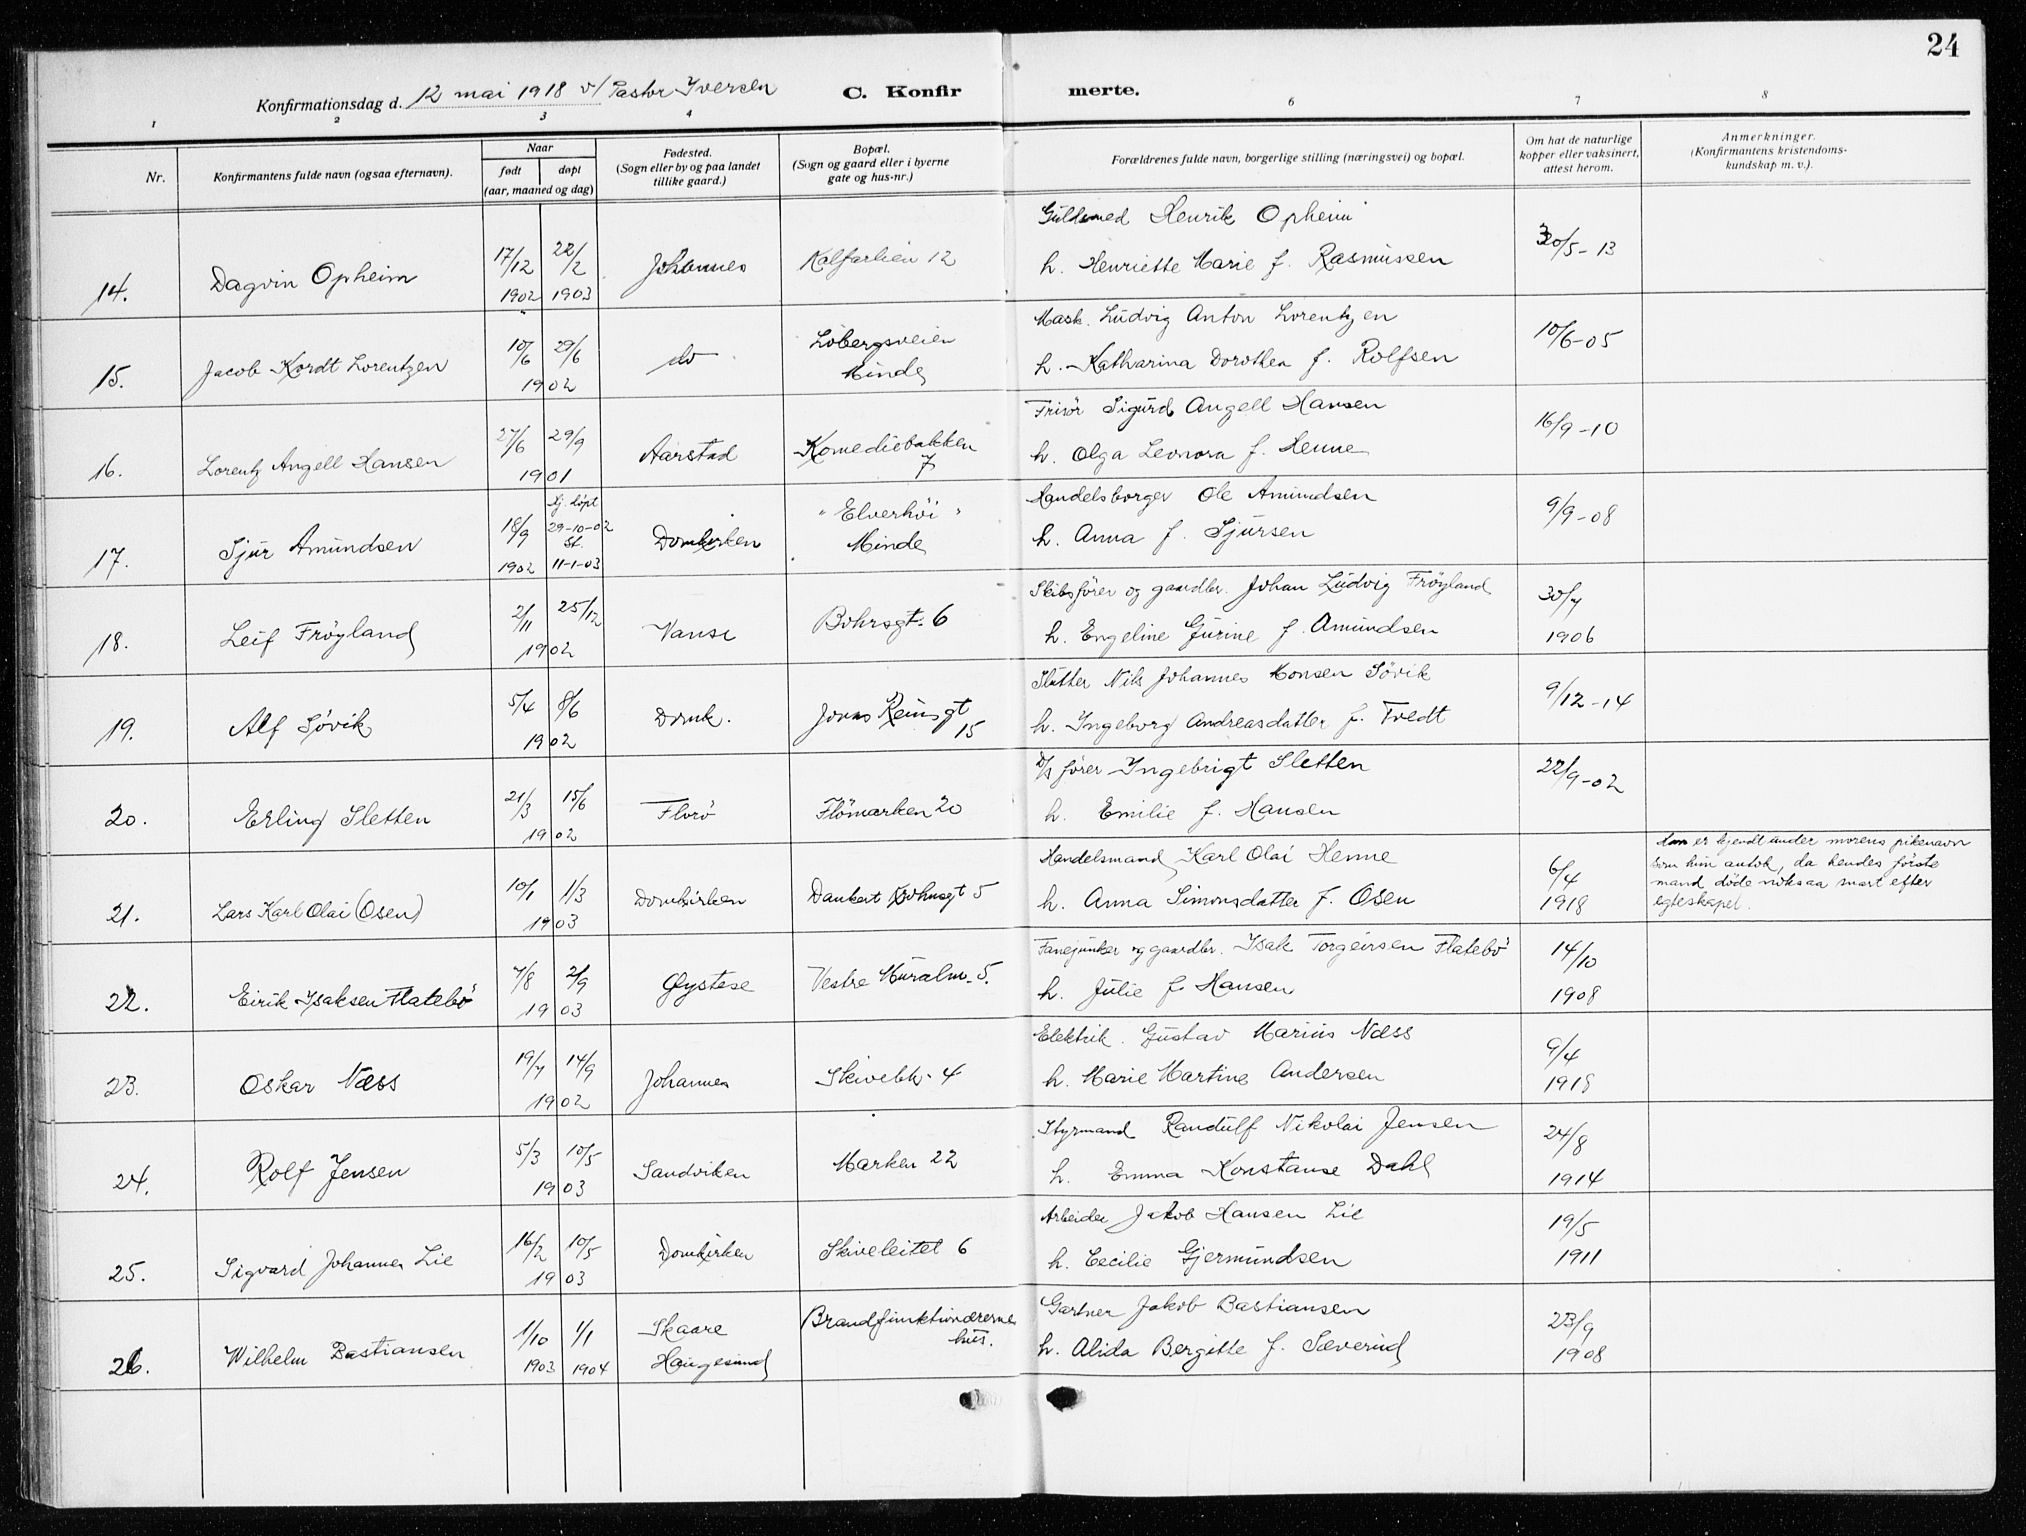 24
Konfirmationsdag d. 12 mai 1918 v/ Pastor Iversen C. Konfir merte.
1 2 3 4 6 7 8
Nr. Konfirmantens fulde navn (ogsaa efternavn). Naar født døpt (aar, maaned og dag) Fødested. (Sogn eller by og paa landet tillike gaard.) Bopæl. (Sogn og gaard eller i byerne gate og hus-nr.) Forældrenes fulde navn, borgerlige stilling (næringsvei) og bopæl. Om hat de naturlige kopper eller vaksinert, attest herom. Anmerkninger. (Konfirmantens kristendomskundskap m. v.).
Guldsmed Henrik Opheim
14. Dagvin Opheim 17/12 1902 22/2 1903 Johannes Kalfarlien 12 h. Henriette Marie f. Rasmussen 30/5-13
Mask. Ludvig Anton Lorentzen
15. Jacob Kordt Lorentzen 10/6 29/6 1902 do Løbergsveien Minde h. Katharina Dorothea f. Rolfsen 10/6-05
Frisør Sigurd Angell Hansen
16. Lorentz Angell Hansen 27/6 29/9 1901 Aarstad Komediebakken 7 h. Olga Leonora f. Henne 16/9-10
Handelsborger Ole Amundsen
17. Sjur Amundsen 18/9 1902 hj. døpt 29-10-02 St. 11-1-03 Domkirken "Elverhöi" Minde h. Anna f. Sjursen 9/9-08
Skibsfører og gaardbr. Johan Ludvig Fröyland
18. Leif Fröyland 2/11 25/12 1902 Vanse Bohrsgt. 6 h. Engeline Gurine f. Amundsen 30/7 1906
Sletter Nils Johannes Monsen Sövik
19. Alf Sövik 5/4 8/6 1902 Domk. Jonas Reinsgt 15 h. Ingeborg Andreasdatter f. Tvedt 9/12-14
D/s fører Ingebrigt Sletten
20. Erling Sletten 21/3 15/6 1902 Florö Flömarken 20 h. Emilie f. Hansen 22/9-02
Handelsmand Karl Olai Henne
21. Lars Karl Olai (Osen) 10/1 1/3 1903 Domkirken Dankert Krohnsgt 5 h. Anna Simonsdatter f. Osen 6/4 1918
Han er kjendt under morens pikenavn
som hun antok, da hendes første
mand døde noksaa snart efter
egteskapet.
Fanejunker og gaardbr. Isak Torgeirsen Flatebö
22. Eirik Isaksen Flatebö 7/8 2/9 1903 Øystese Vestre Muralm. 5. h. Julie f. Hansen 14/10 1908
Elektrik. Gustav Marius Næss
23. Oskar Næss 19/7 14/9 1902 Johannes Skivebk. 4 h. Marie Martine Andersen 9/4 1918
Styrmand Randulf Nikolai Jensen
24. Rolf Jensen 5/3 10/5 1903 Sandviken Marken 22 h. Emma Konstanse Dahl 24/8 1914
Arbeider Jakob Hansen Lie
25. Sigvard Johannes Lie 16/2 10/5 1903 Domkirken Skiveleitet 6 h. Cecilie Gjermundsen 19/5 1911
Gartner Jakob Bastiansen
26. Wilhelm Bastiansen 1/10 1903 1/1 1904 Skaare Haugesund Brandfunktionærernes hus. h. Alida Bergitte f. Sæverud 23/9 1908